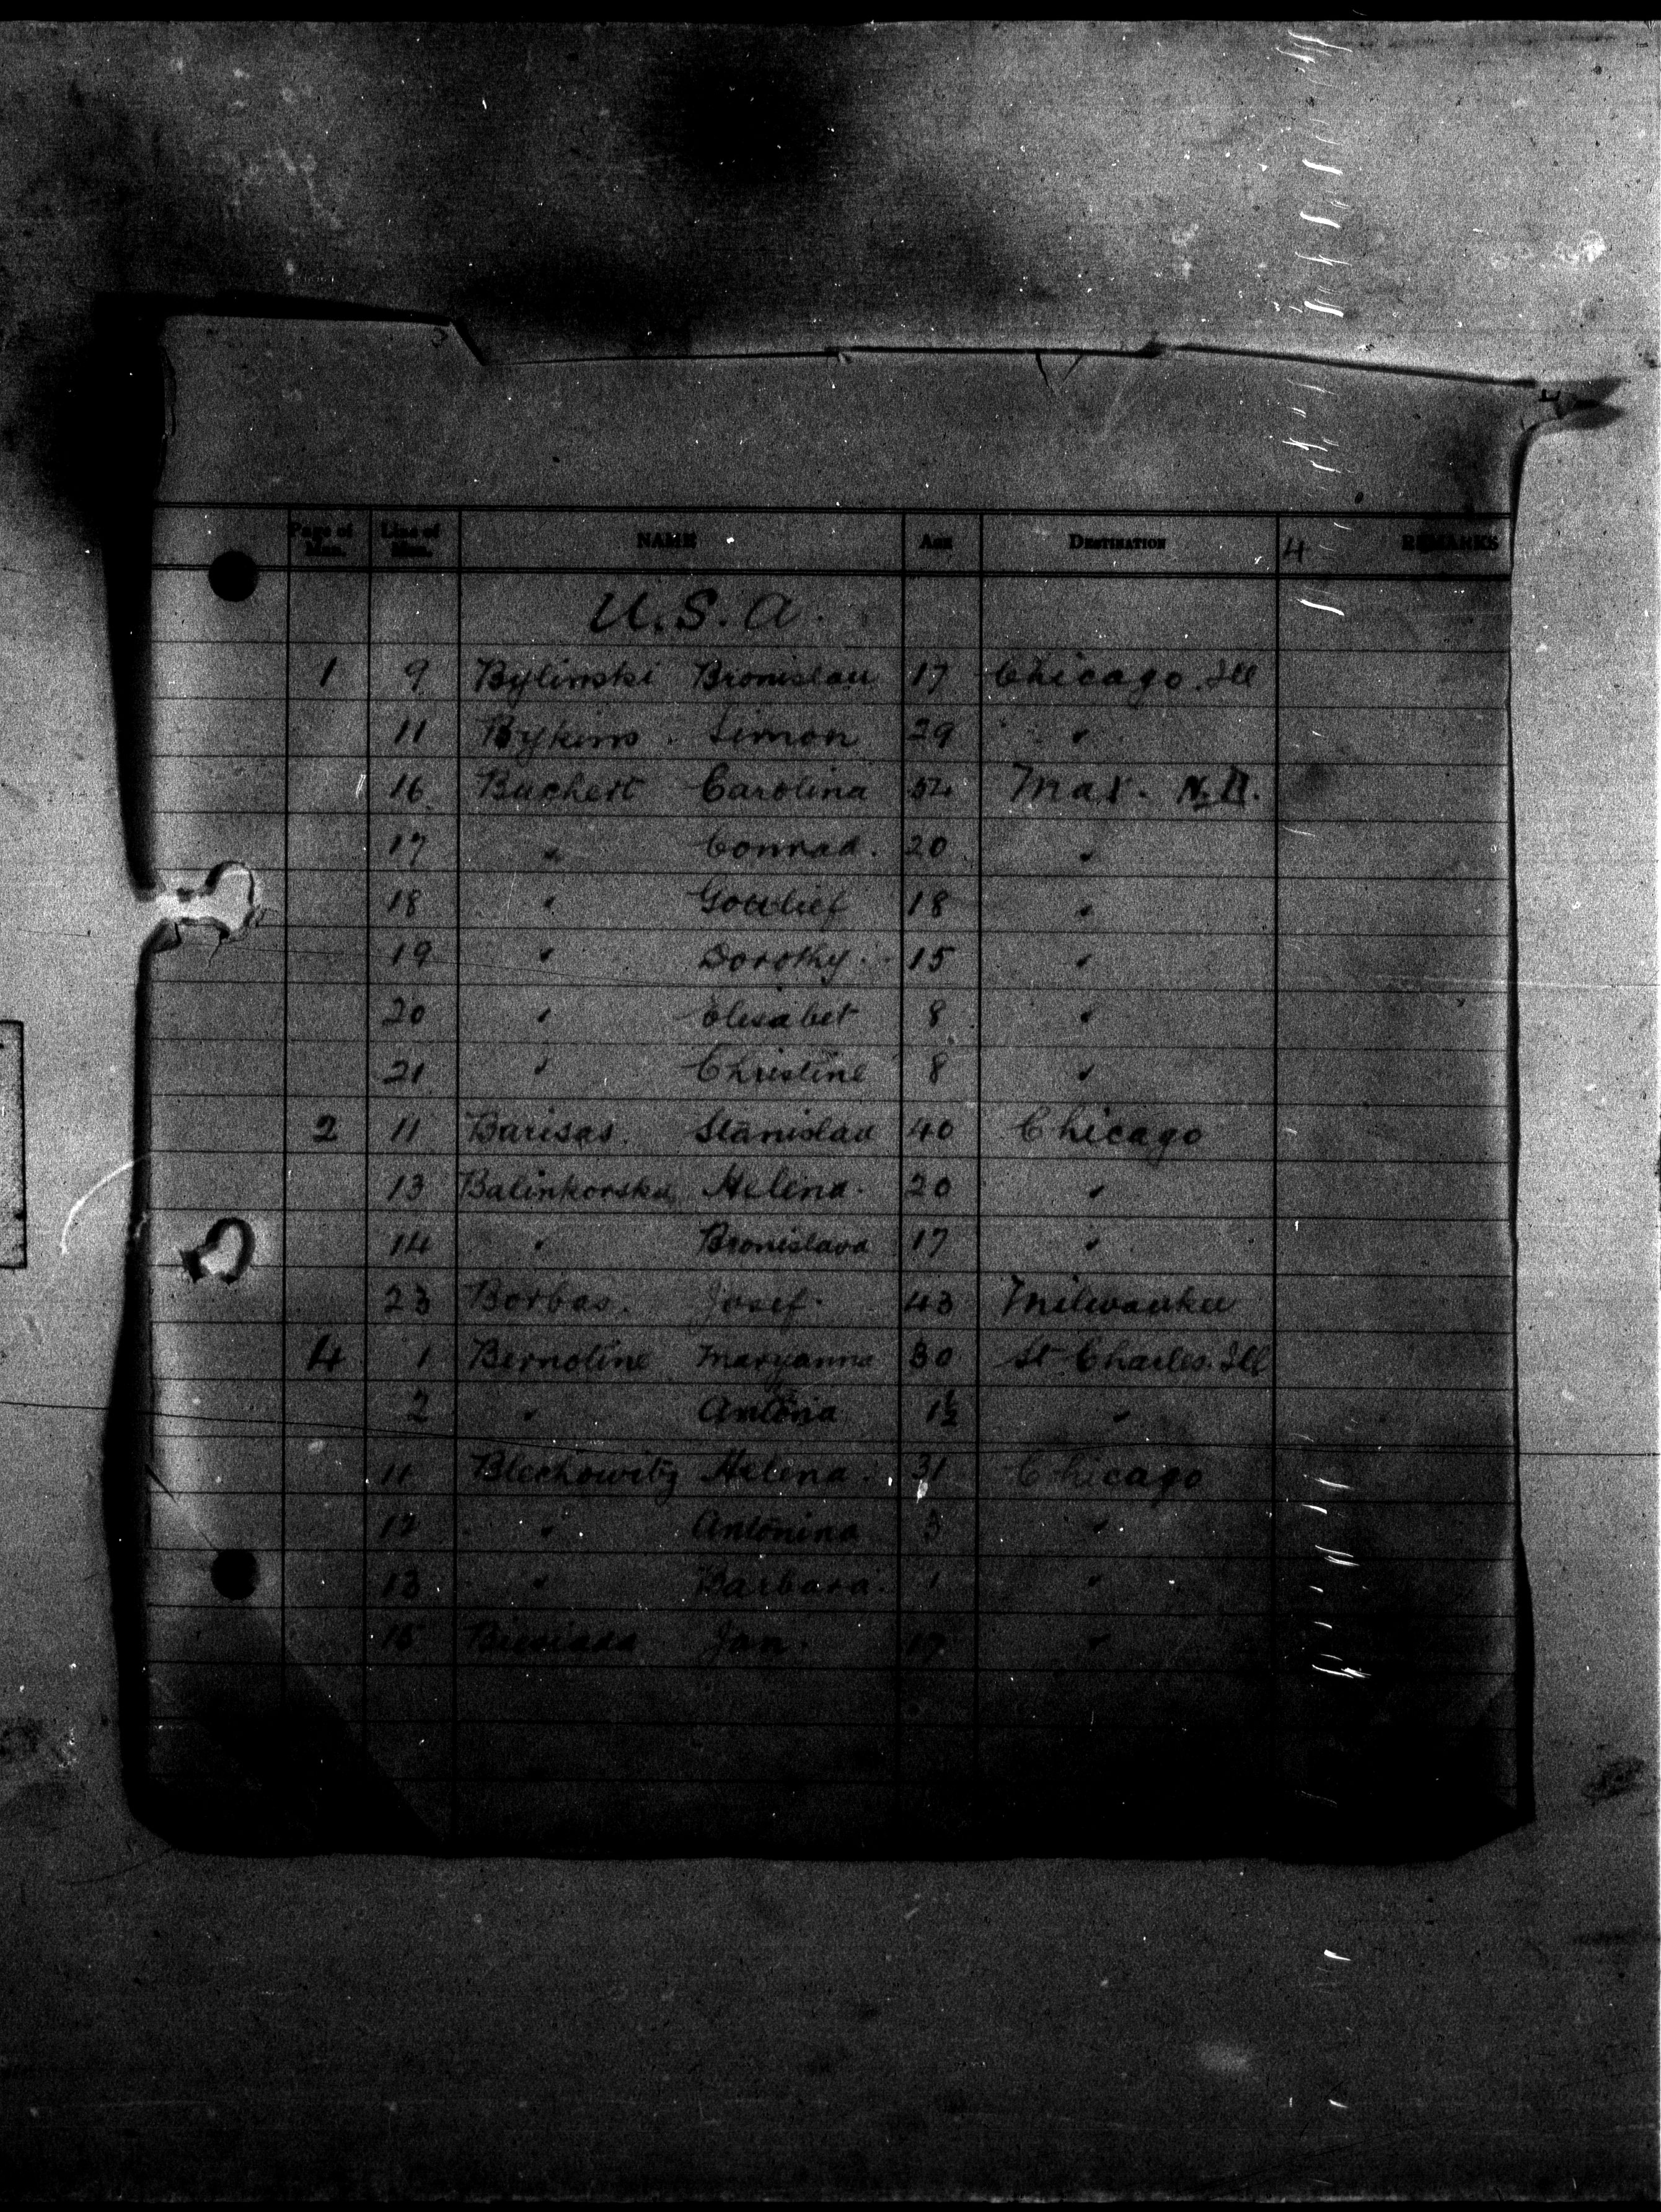 Page of Man. Line of Man. NAME AGE DESTINATION 4 REMARKS
U.S.A.
1 9 Bylinski Bronislau 17 Chicago. Ill
11 Bykins. Simon 29 "
16 Buchert Carolina 54 Max. N.D.
17 " Connad. 20 "
18 " Gottlief 18 "
19 " Dorothy. 15 "
20 " Elisabet 8 "
21 " Christine 8 "
2 11 Barisas. Stanislau 40 Chicago
13 Balinkorska Helena. 20 "
14 " Bronislava 17 "
23 Borbas. Josef. 43 Milwaukee
4 1 Bernotine Maryanna 30 St Charles. Ill
2 " Antonia 1½ "
11 Blechowitz Helena. 31 Chicago
12 " Antonina 3 "
13 " Barbara. 1 "
15 Jan. 17 "